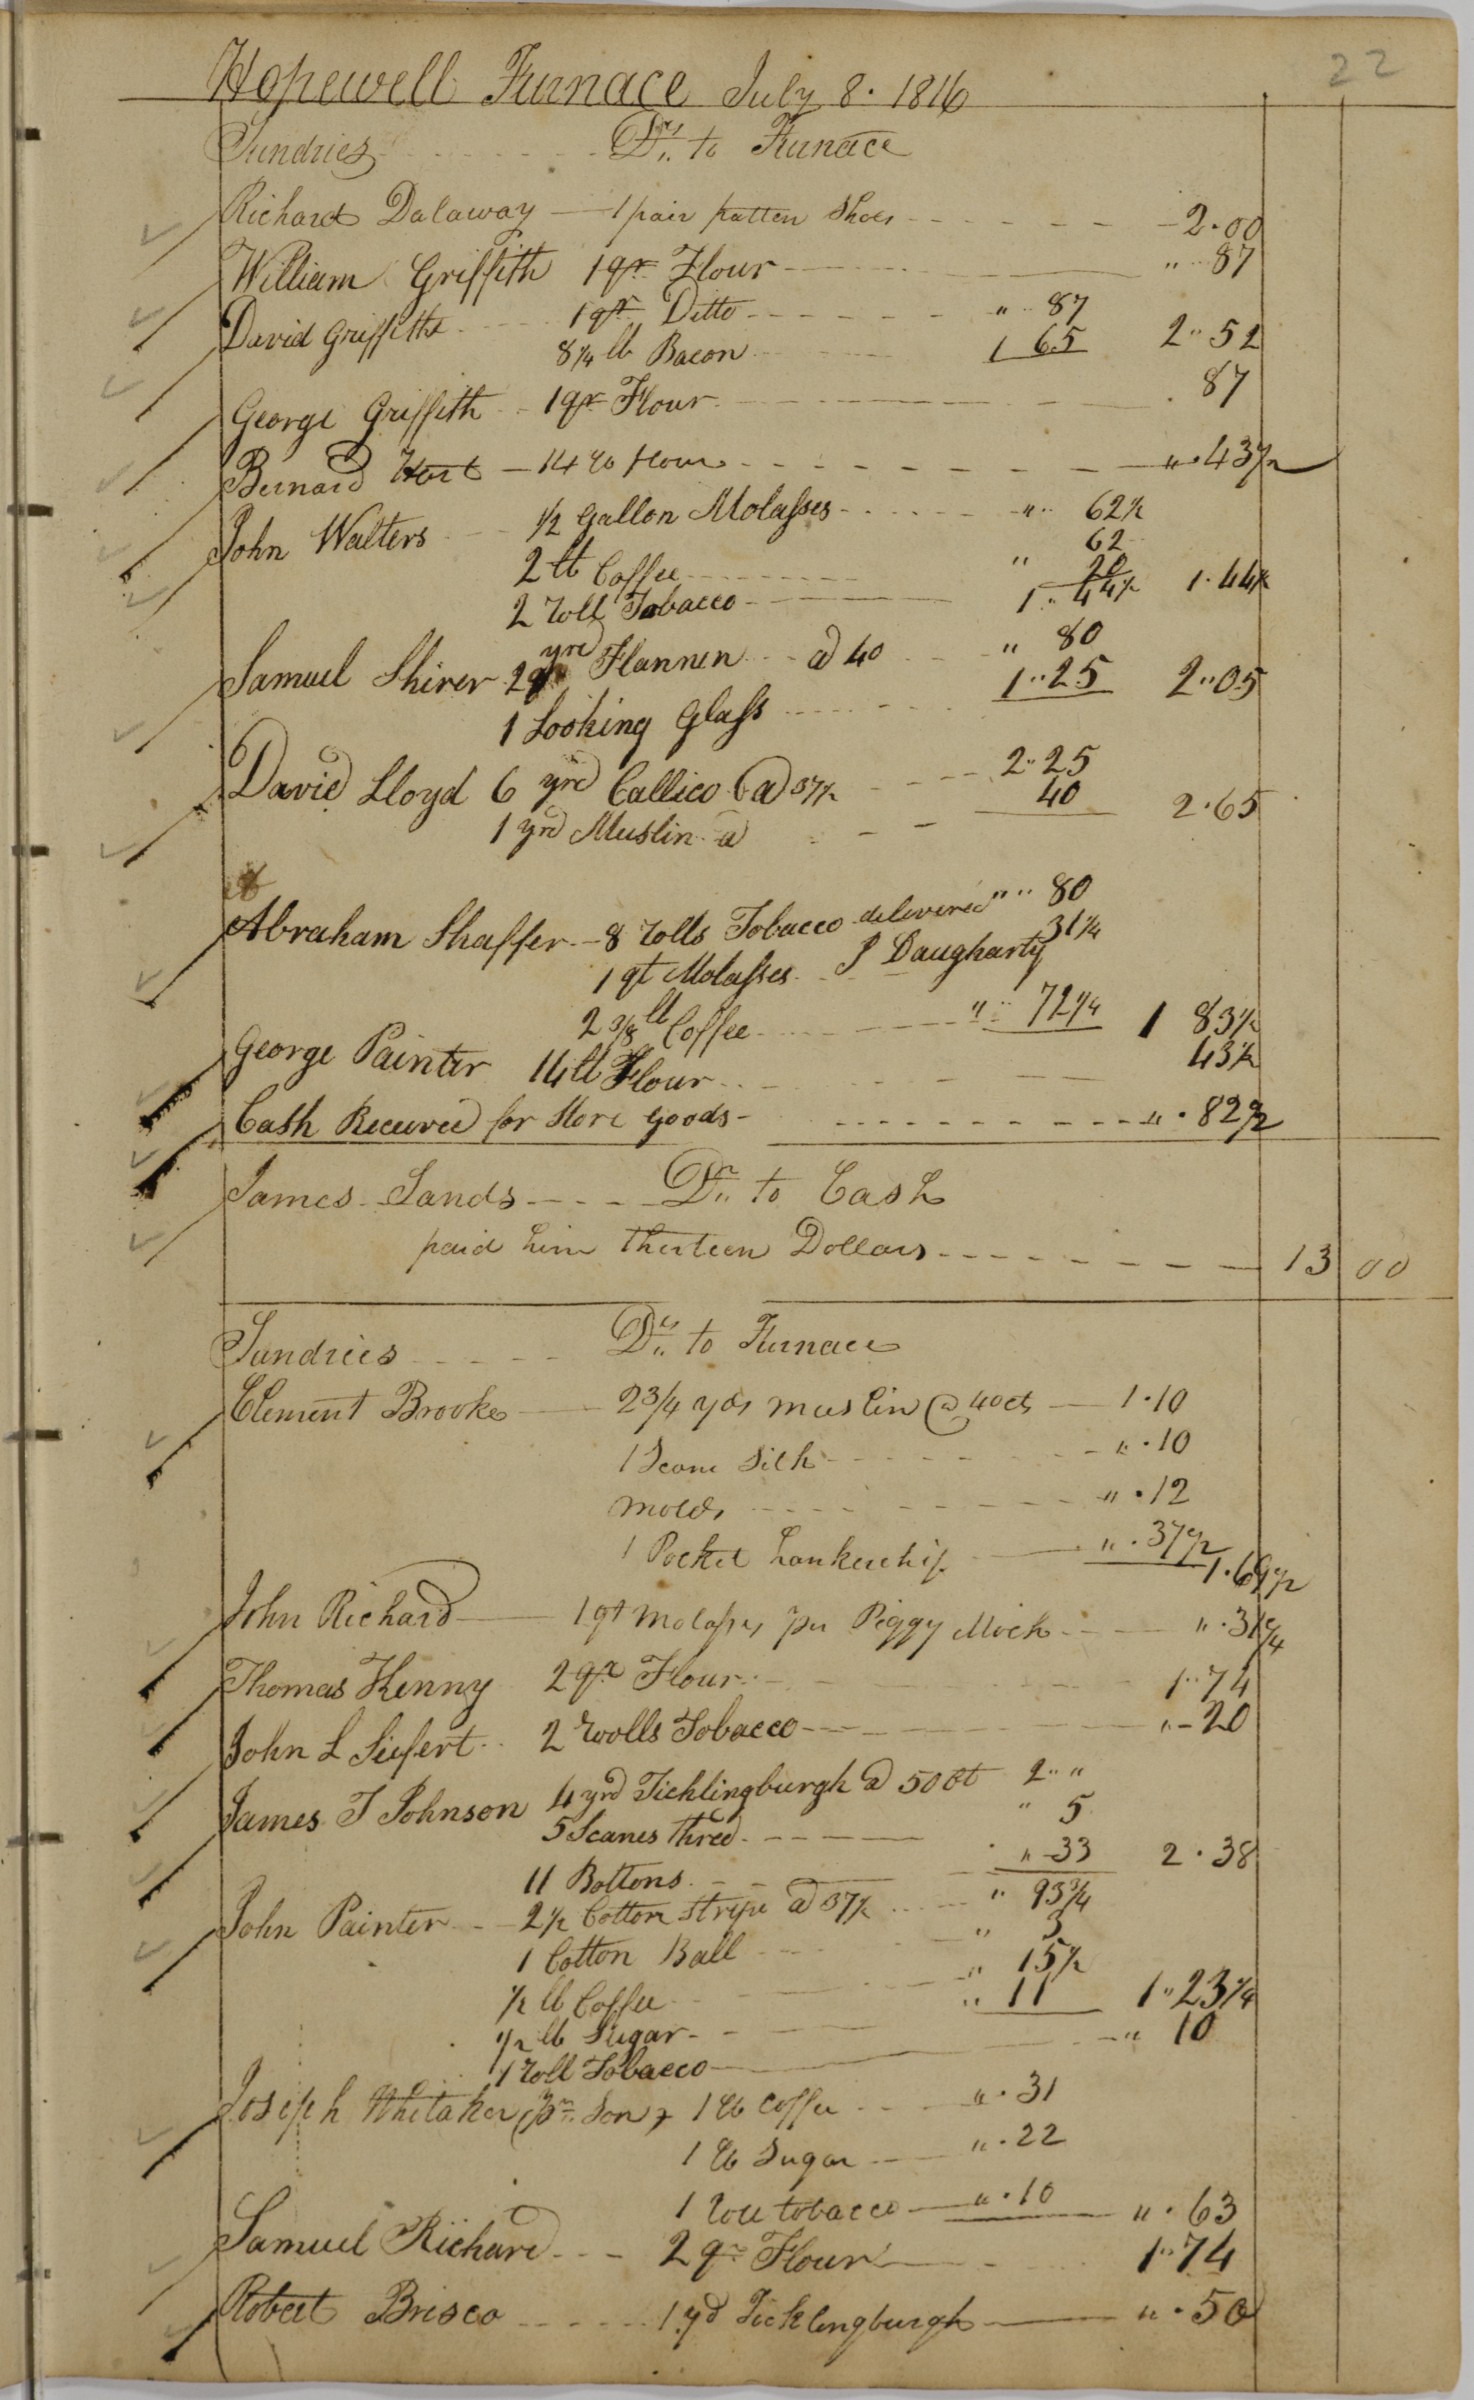 22
Hopewell Furnace July 8. 1816
Sundries Drs. to Furnace
Richard Dalaway 1 pair patten Shoes 2.00
William Griffith 1 qr Flour " 87
David Griffiths 1 qr Ditto " 87
8 1/4 lb Bacon 1 65 2 " 52
George Griffith 1 qr Flour . 87
Bernard Hart 14 lb flour " . 43 1/2
John Walters 1/2 Gallon Molasses " 62 1/2
2 lb Coffee " 62
2 roll Tobacco 20
1 " 44 1/2 1.44 1/2
Samuel Shirer 2 yrd Flannen @ 40 " 80
1 Looking Glass 1 " 25 2 " 05
David Lloyd 6 yrd Callico @ 37 1/2 2 " 25
1 yrd Muslin @ 40 2.65
Abraham Shaffer 8 rolls Tobacco delivered " " 80
1 qt Molasses J Daugharty 31 1/4
2 3/8 lb Coffee " 72 1/4 1 83 1/2
George Painter 14 lb Flour 43 1/2
Cash Received for Store Goods " . 82 1/2
James Sands Dr. to Cash
paid him thirteen Dollars 13 00
Sundries Drs. to Furnace
Clement Brooke 2 3/4 yds muslin @ 40 cts 1.10
1 Scane Silk " . 10
Molds " . 12
1 Pocket hankerchif " . 37 1/2 1.69 1/2
John Richard 1 qt Molasses per Peggy Mick " . 31 1/4
Thomas Kenny 2 qr Flour 1 " 74
John L Siefert 2 roolls Tobacco " 20
James T Johnson 4 yrd Ticklingburgh @ 50 Ct 2 " "
5 Scanes thred " 5
11 Bottons " 33 2.38
John Painter 2 1/2 Cotton Stripe @ 37 1/2 " 93 3/4
1 Cotton Ball " 3
1/2 lb Coffee " 15 1/2
1/2 lb Sugar " 11 1 " 23 1/4
1 roll Tobacco " 10
Joseph Whitaker (Jr. Son) 1 lb Coffee " . 31
1 lb Sugar " . 22
1 roll tobacco " . 10 " . 63
Samuel Richard 2 qr Flour 1 " 74
Robert Brisco 1 yd Ticklingburgh " . 50